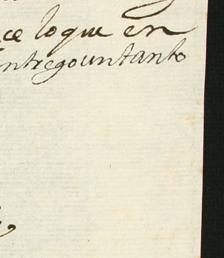 ce lo que en
ntrego un tanto